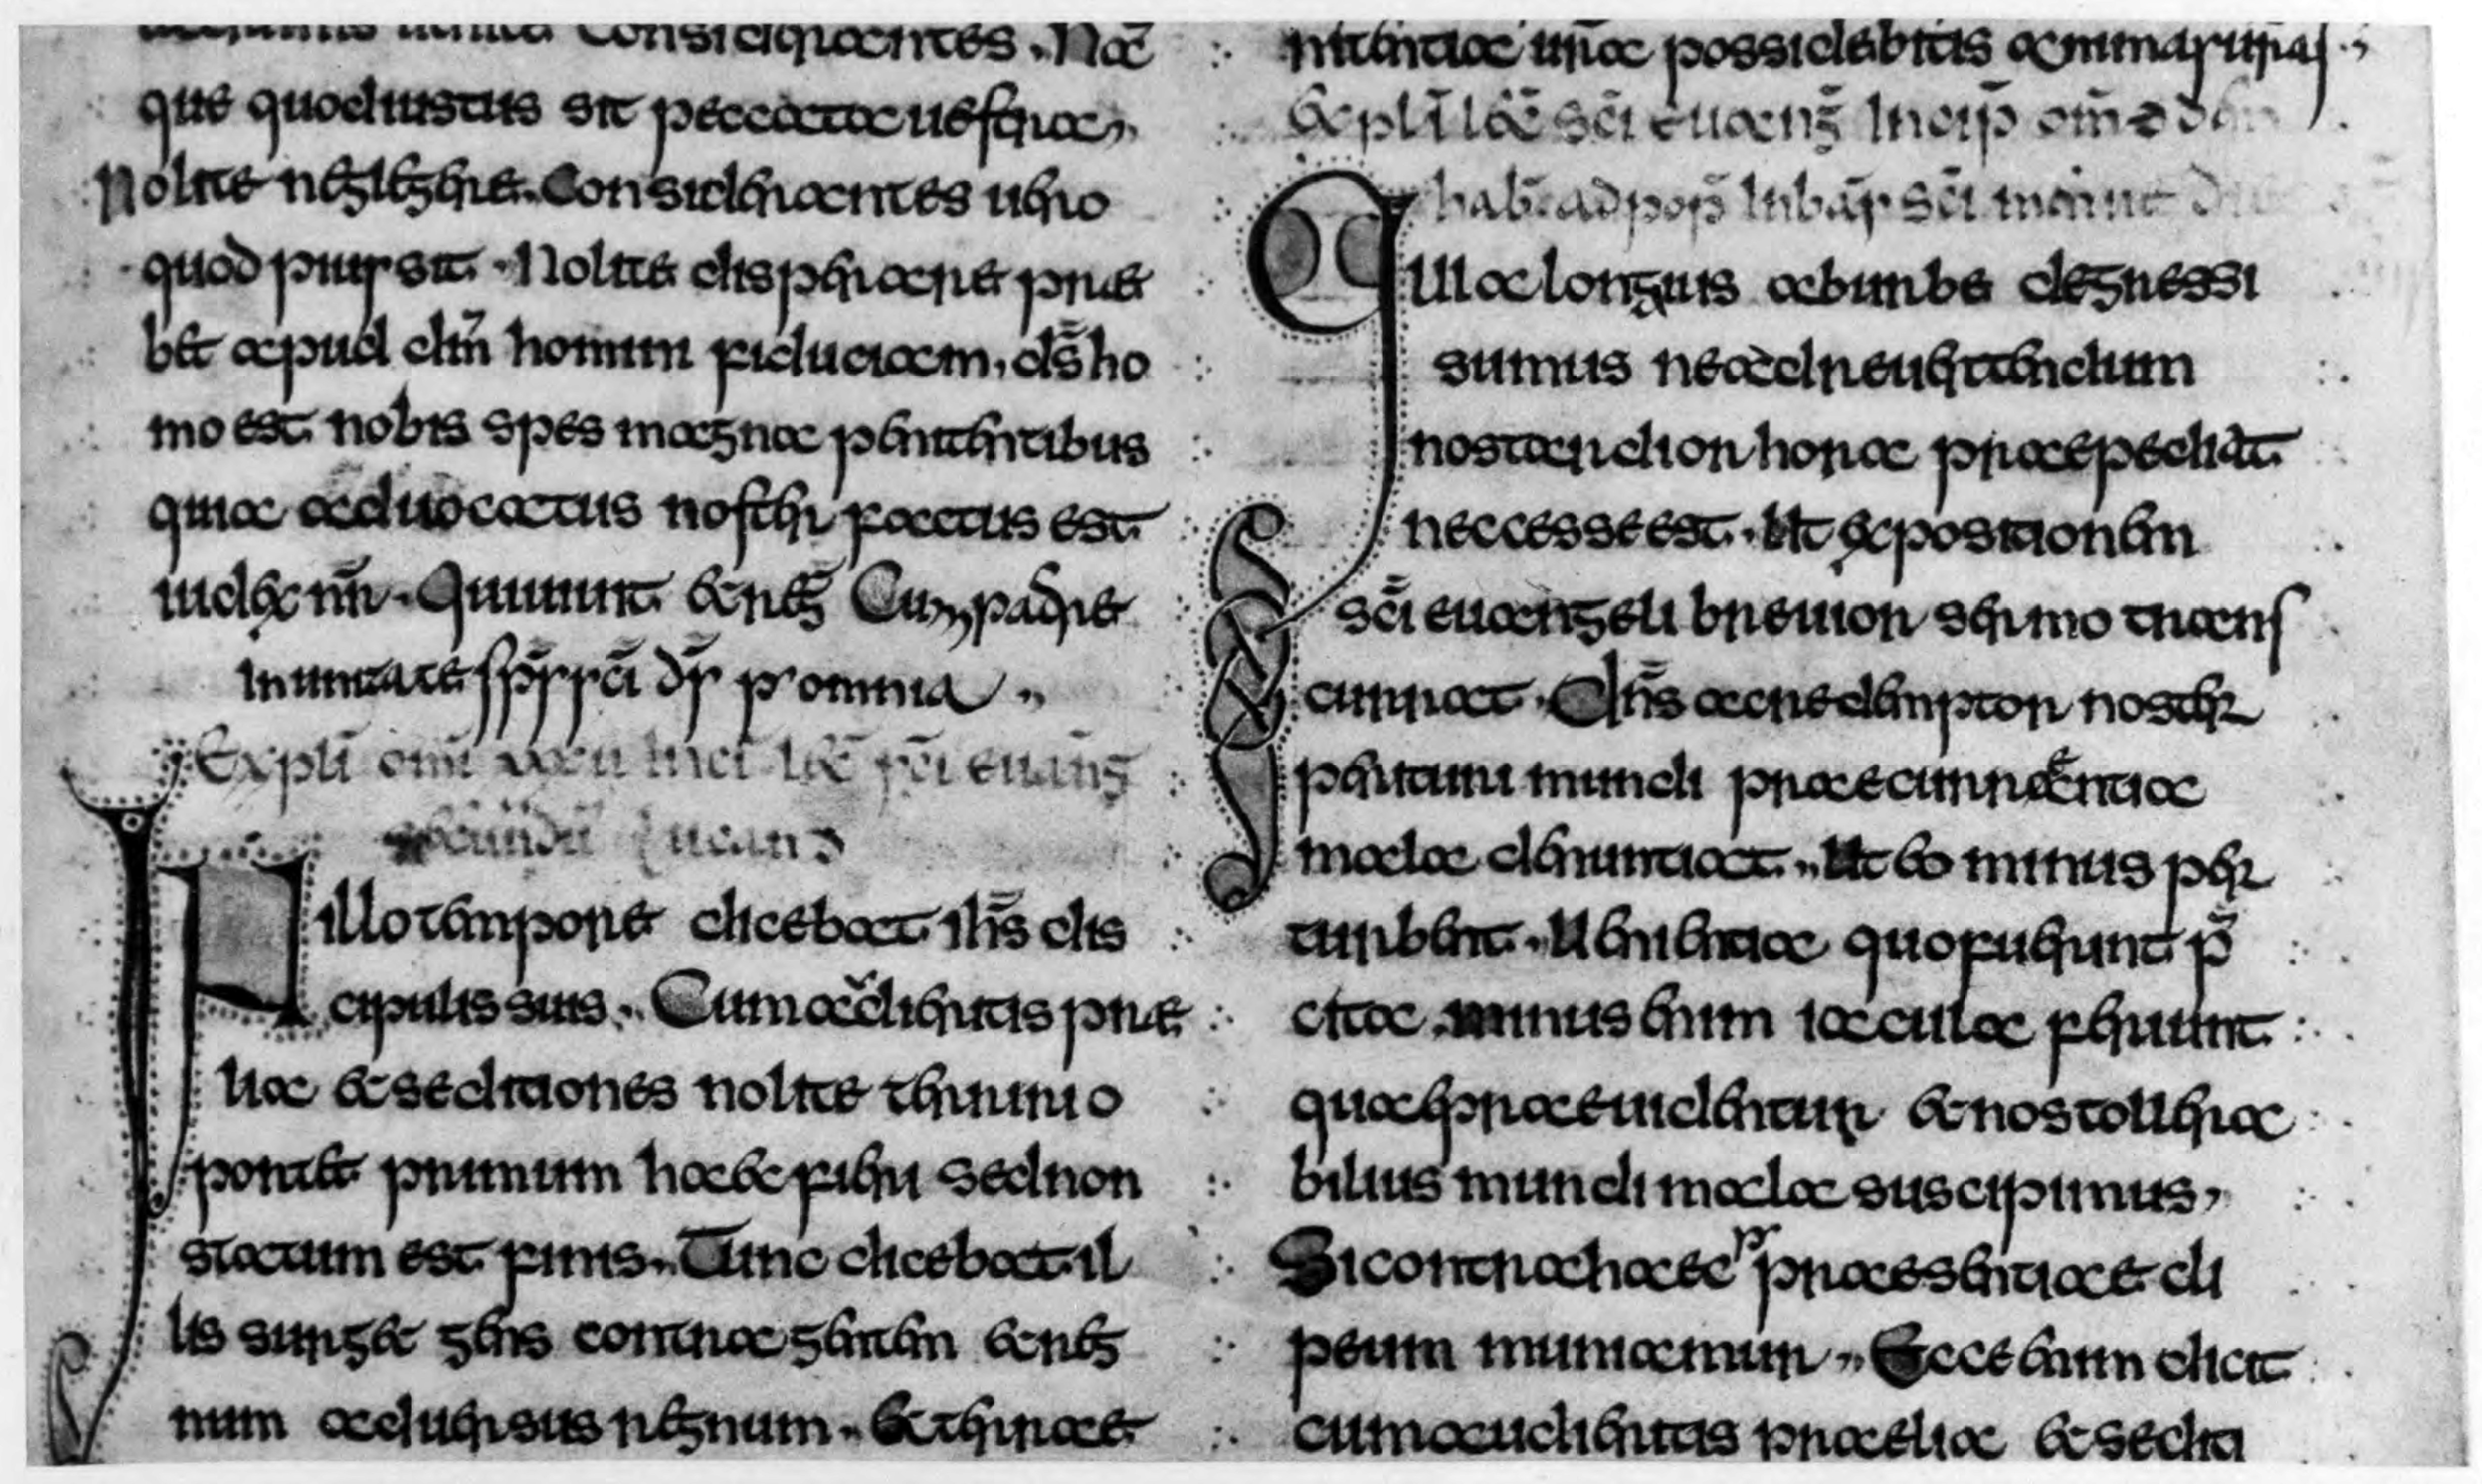 considerantes. Nā
que quod iustus sit peccata uestra,
Nolite neglegere. Considerantes uero
quod pius sit. Nolite disperare prae
bet apud dm̄ homini fiduciam, ds̄ ho
mo est nobis spes magna penitentibus
quia aduocatus nostri factus est
iudex nr̄. Qui uiuit et reg̅ Cum patre
in unitate sp̄s sc̄i ds̄ p omnia
Expli om̄i Inci lec̄ sc̄i euang̅
secundū lucan
In illo tempore dicebat ihs̄ dis
cipulis suis. Cum audieritis prae
lia et seditiones nolite terreri o
portet primum haec fieri sed non
statum est finis. Tunc dicebat il
lis surget gens contra gentem et reg
num aduersus regnum. Et terrae
nitentia ur̄a possidebitis animas uras.,
Expli lec̄ sc̄i euang̅ Incip̄ om̄
hab̄ ad pop̄ In bas̄ sc̄i
Quia longius ab urbe degressi
sumus ne ad reuertendum
nos tardior hora praepediat
neccesse est. Ut expositionem
sc̄i euangeli breuior sermo trans
currat. Dn̄s ac redemptor noster
perituri mundi praecurrentia
mala denuntiat. Ut eo minus per
turbent. Uenientia quo fuerunt p̄
cita. minus enim iacula feriunt
quae praeuidentur et nos tollera
bilius mundi mala suscipimus,
Si contra haec p praescientiae cli
peum muniamur. Ecce enim dicit
cum audieritis praelia et sediti